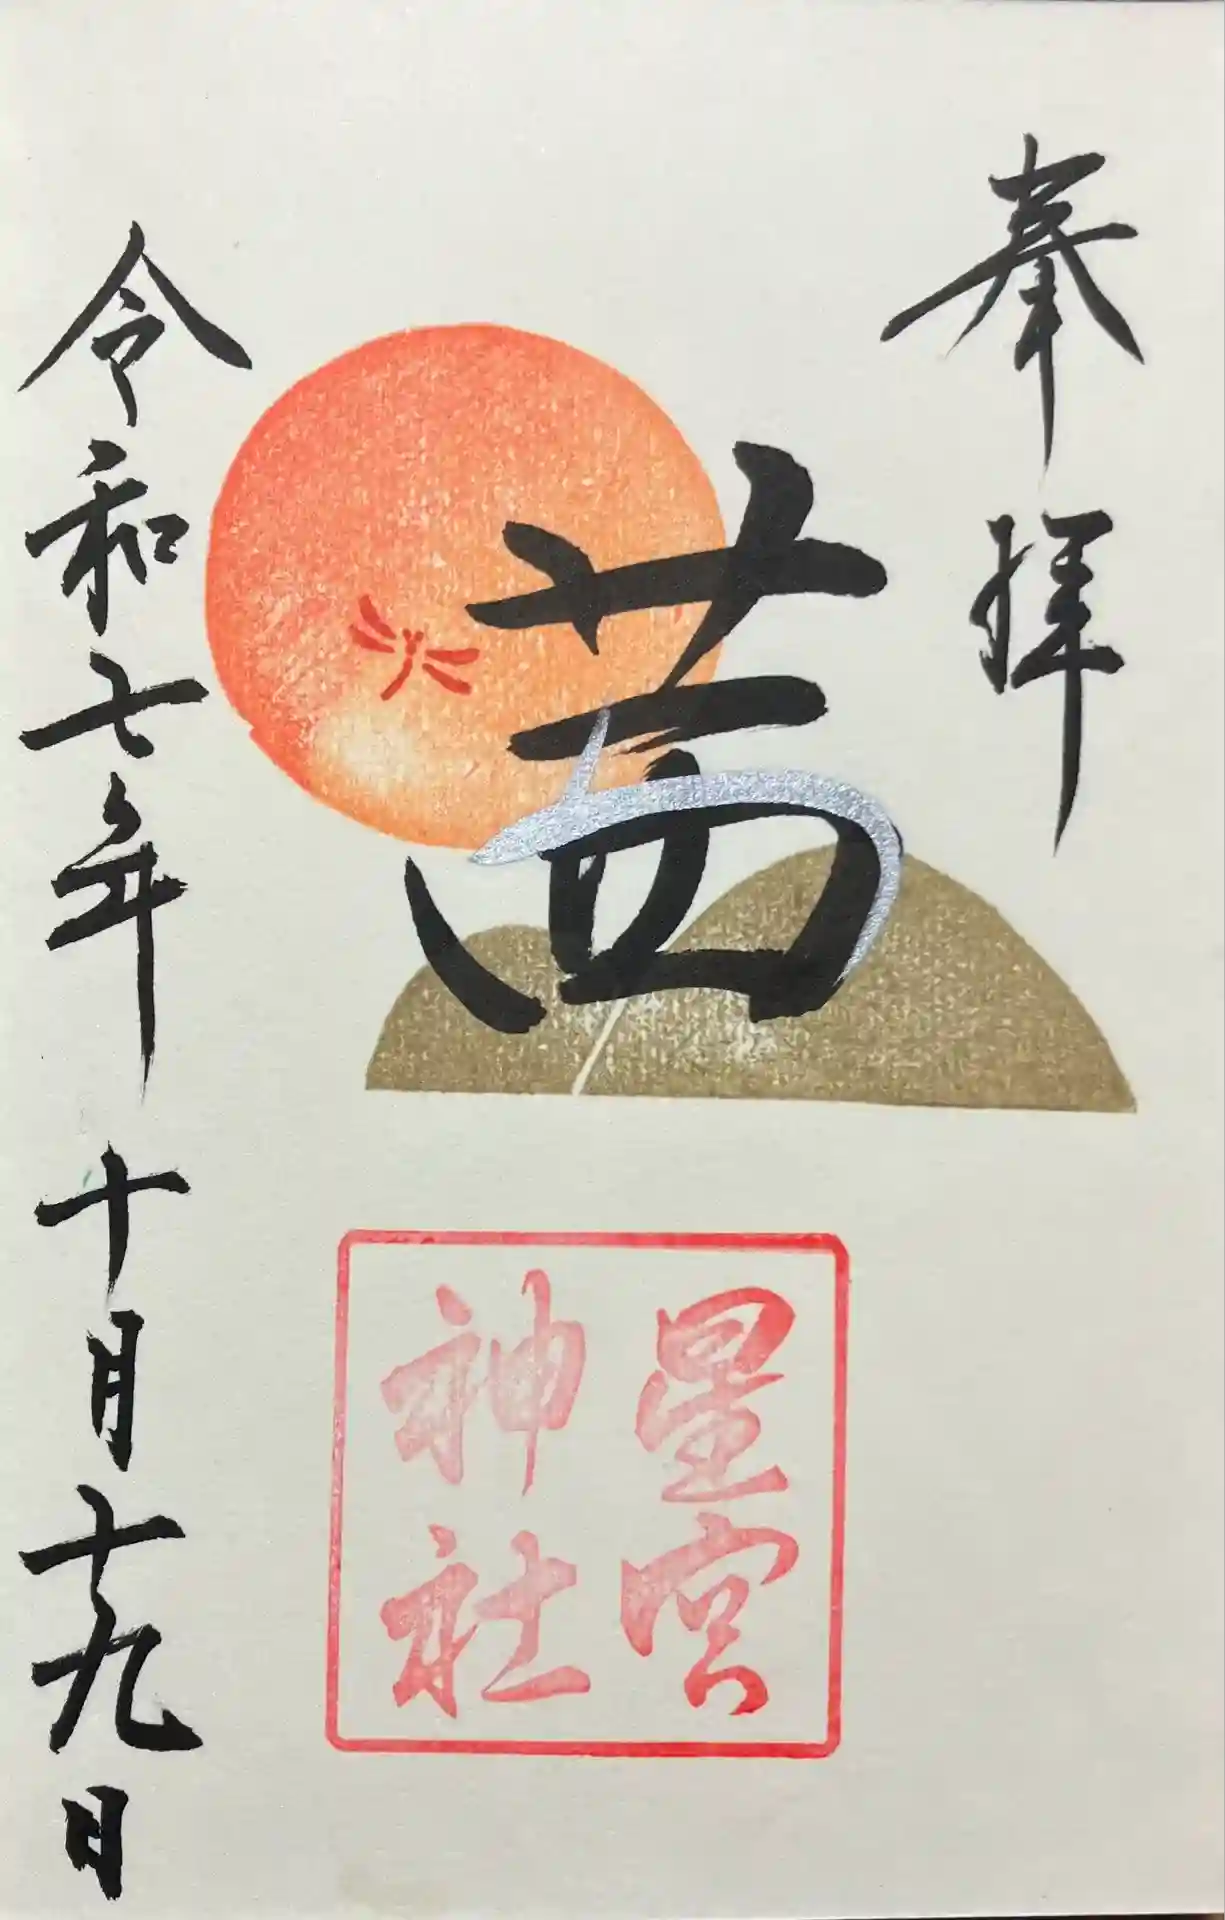 奉拝
茜
星宮
神社
令和七年十月十九日